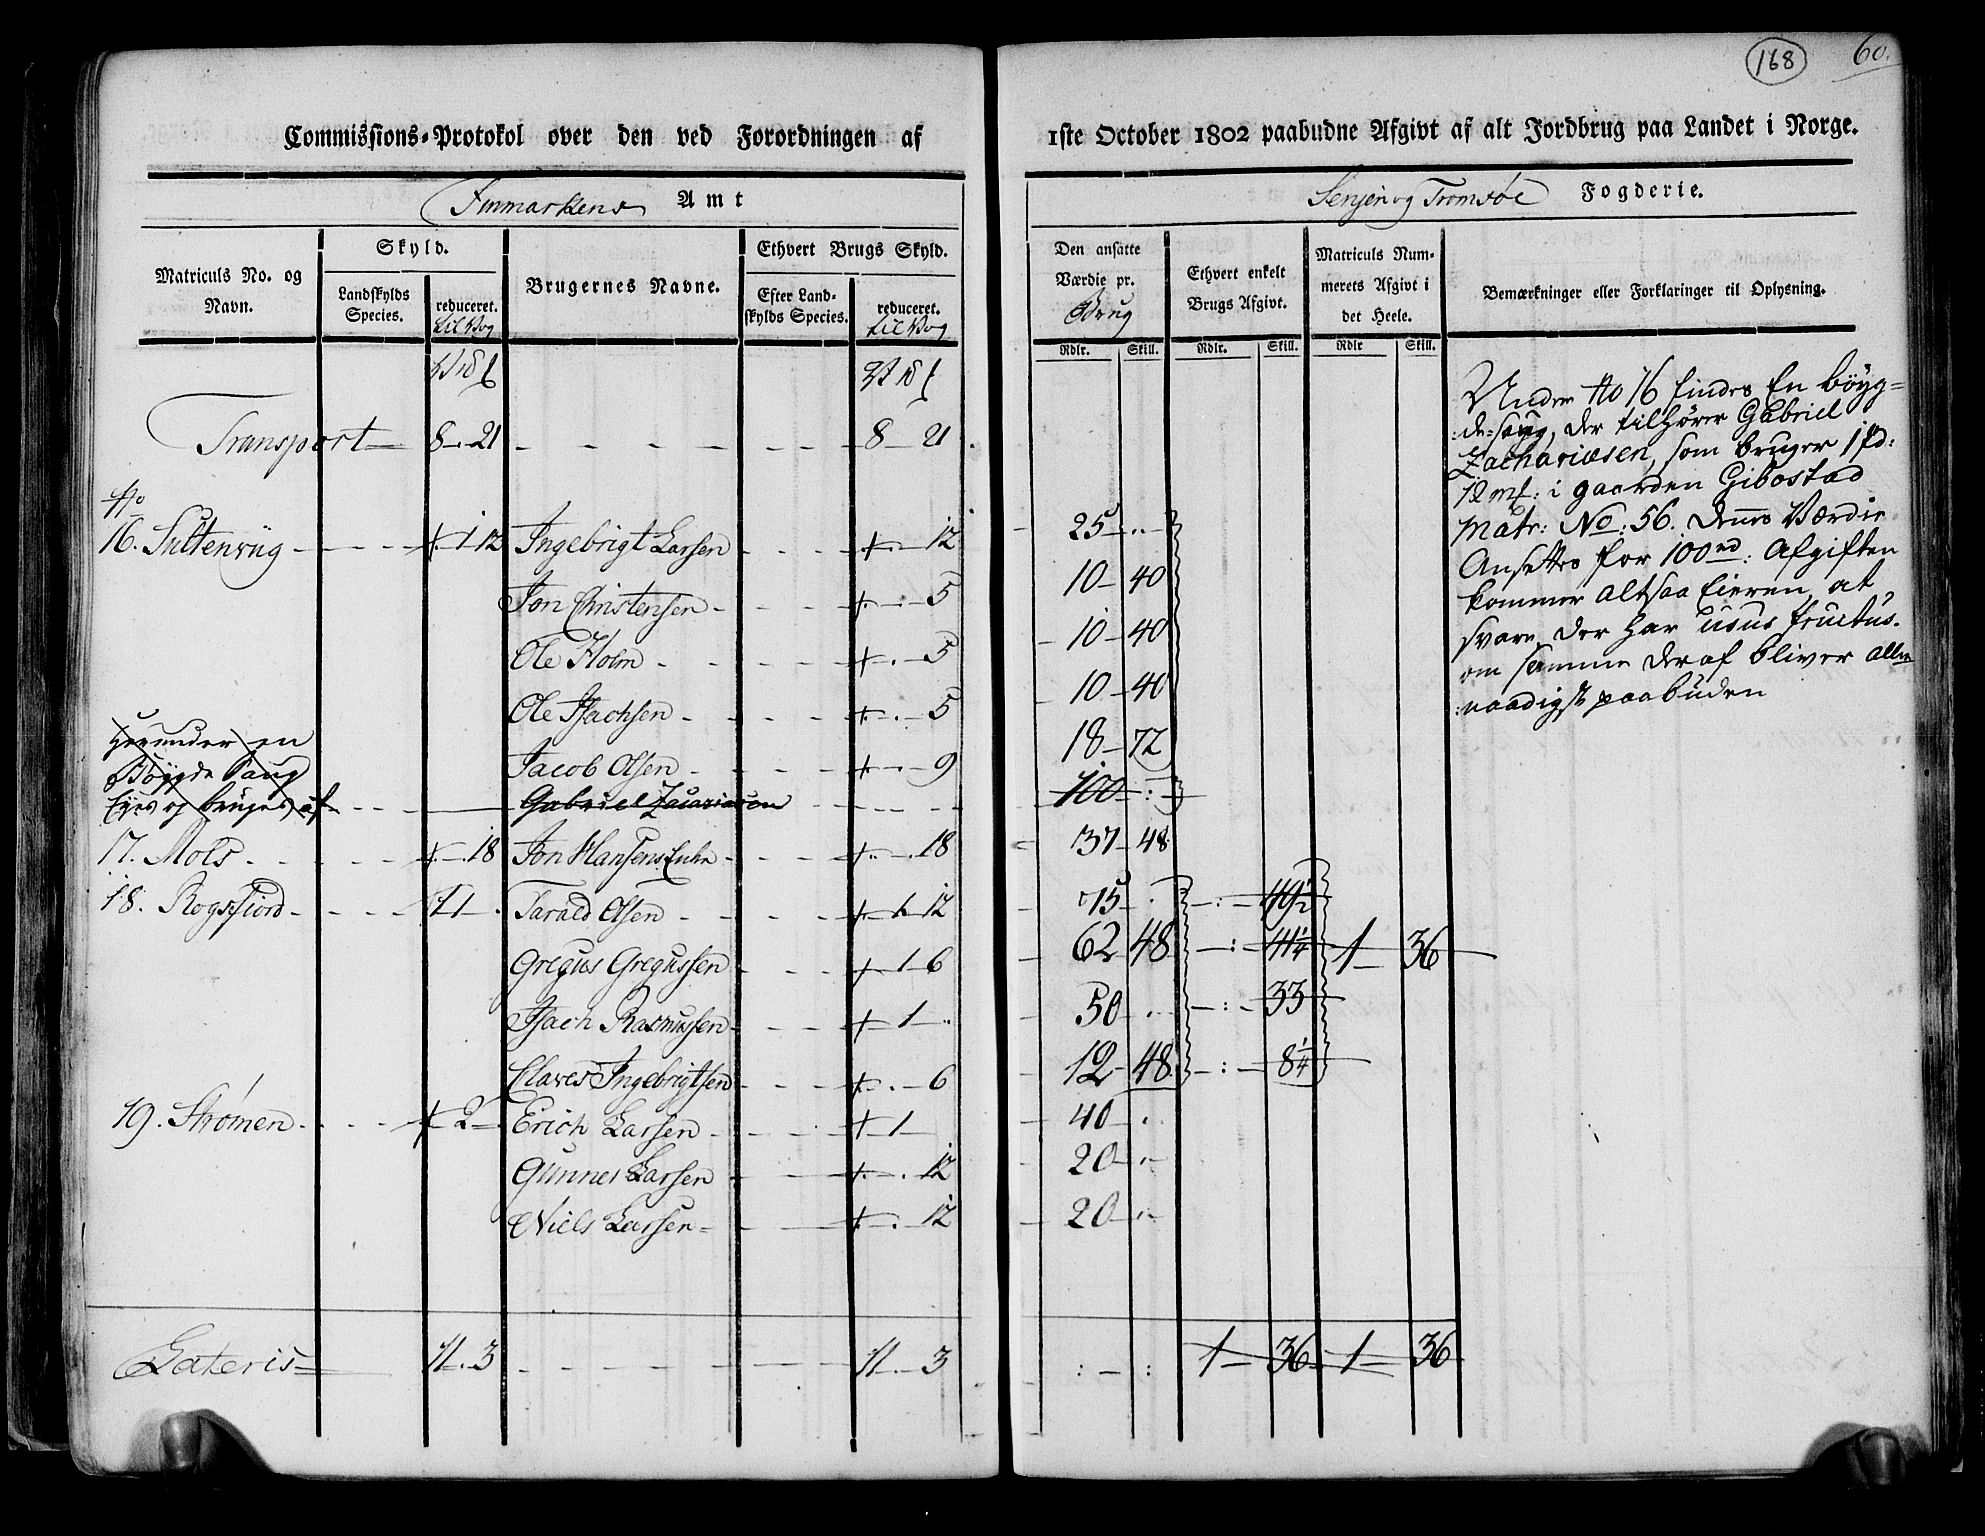 168
60.
Commissions-Protokol over den ved Forordningen af 1ste October 1802 paabudne Afgivt af alt Jordbrug paa Landet i Norge.
Finmarkens Amt
Senjen og Tromsøe Fogderie.
Matriculs No. og Navn.
Skyld.
Landskylds Species.
reduceret. til Vog
Brugernes Navne.
Ethvert Brugs Skyld.
Efter Landskylds Species.
reduceret. til Vog
Den ansatte Værdie pr. Brug
Ethvert enkelt Brugs Afgivt.
Matriculs Nummerets Afgivt i det Heele.
Bemærkninger eller Forklaringer til Oplysning.
Rdlr. Skill. Rdlr. Skill. Rdlr Skill.
Transport 8 - 21 - - - - 8 - 21
No
16. Sultenvig - - - 1 12 Ingebrigt Larsen - - - 12 25 - ..
Jon Christensen - - - 5 10 - 40
Ole Holm - - - 5 10 - 40
Ole Isachsen - - - 5 10 - 40
Jacob Olsen - - - 9 18 - 72
Herunder en
Bøygde Saug
Eyes og bruges af - - Gabriel Zacariasen - - - 100 - :
17. Mols - - - 18 Jon Hansens Enke - - - 18 37 - 48
18. Rogsfiord - - - 1 1 - Tarald Olsen - - - 1 - 12 75 - . - : - 49½
Gregus Gregussen - - - 1 - 6 62 - 48 - : - 41¼ 1 - 36
Isach Rasmussen - - - 1 - .. 50 - . - : - 33
Claves Ingebrigtsen - - - 6 12 - 48 - : - 8¼
19. Strømen - - - 2 - Erich Larsen - - - 1 - 40 - .
Gunner Larsen - - - 12 20 - .
Niels Larsen - - - 12 20 - .
Lateris 11 . 3 - - - - 11 - 3 : - : 1 - 36 1 - 36
Under No 16 findes En bøyg=
:de=saug, der tilhører Gabriel
Zachariasen, som bruger 1 pd:
12 mk: i gaarden Gibostad
Matr: No: 56. dennes Værdie
Ansettes for 100 rd: Afgiften
kommer altsaa Eieren, at
svare, der har usus fructus.
om samme deraf bliver aller
:naadigst paabuden